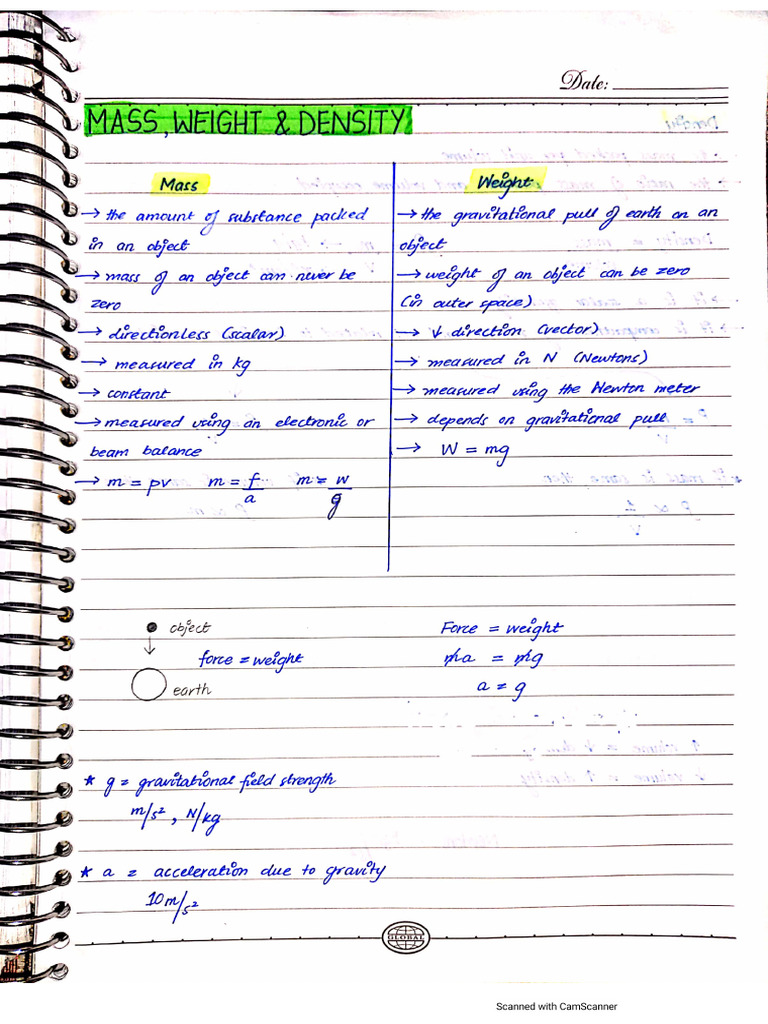 Date:
MASS, WEIGHT & DENSITY
Mass
→ the amount of substance packed
in an object
→ mass of an object can never be
zero
→ directionless (scalar)
→ measured in kg
→ constant
→ measured using an electronic or
beam balance
→ m = pv m = f/a m = w/g
Weight
→ the gravitational pull of earth on an
object
→ weight of an object can be zero
(in outer space)
→ ↓ direction (vector)
→ measured in N (Newtons)
→ measured using the Newton meter
→ depends on gravitational pull
→ W = mg
object
force = weight
earth
Force = weight
ma = mg
a = g
* g = gravitational field strength
m/s², N/kg
* a = acceleration due to gravity
10m/s²
GLOBAL
Scanned with CamScanner